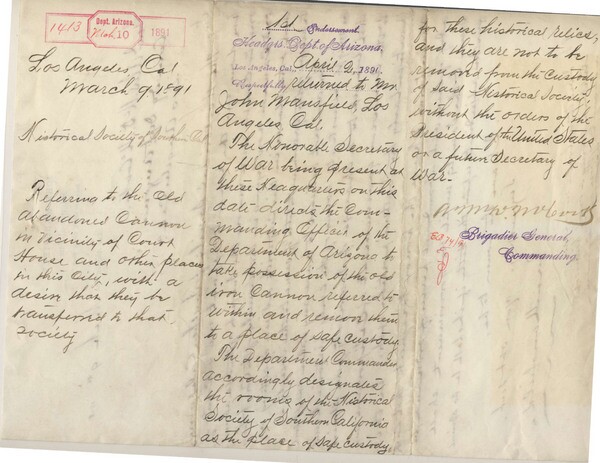 1413
Dept. Arizona.
Mch. 10
1891
Los Angeles Cal
March 9 1891
Historical Society of Southern Cal
Referring to the Old
abandoned Cannon
in Vicinity of Court
House and other places
in this City, with a
desire that they be
transferred to that
Society
1st Endorsement.
Headqrs. Dept of Arizona,
Los Angeles, Cal., April 2, 1891.
Respectfully returned to Mr.
John Mansfield, Los
Angeles Cal.
The Honorable Secretary
of War being present at
these Headquarters on this
date directs the Com-
manding Officer of the
Department of Arizona to
take possession of the old
iron Cannon referred to
within and remove them
to a place of safe custody.
The Department Commander
accordingly designates
the rooms of the Historical
Society of Southern California
as the place of safe custody
for these historical relics,
and they are not to be
removed from the Custody
of said Historical Society
without the orders of the
President of the United States
or a future Secretary of
War.
Brigadier General,
Commanding.